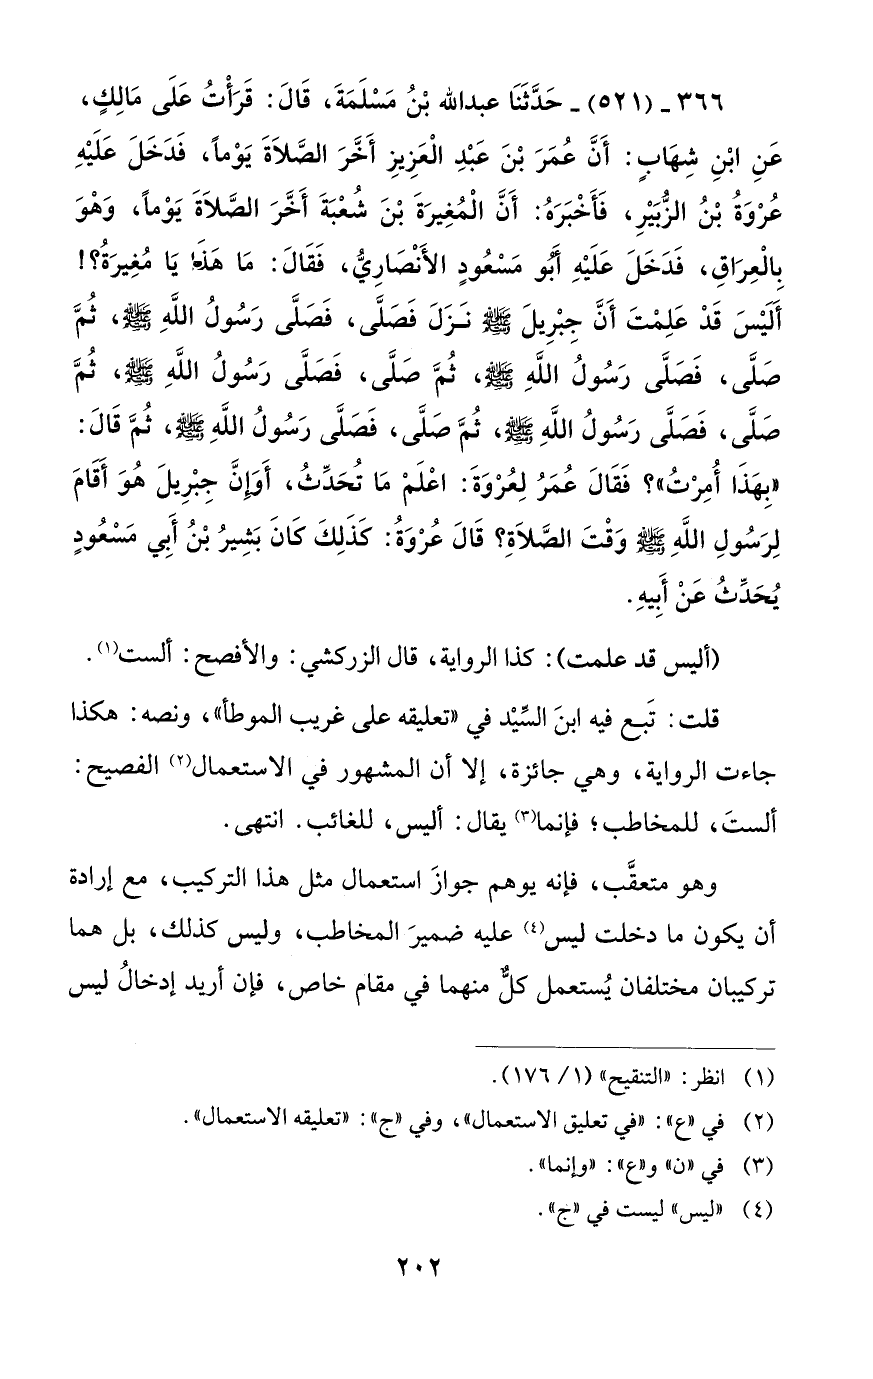 ٣٦٦ - (٥٢١) - حَدَّثَنَا عبدالله بْنُ مَسْلَمَةَ، قَالَ: قَرَأْتُ عَلَى مَالِكٍ،
عَنِ ابْنِ شِهَابٍ: أَنَّ عُمَرَ بْنَ عَبْدِ الْعَزِيزِ أَخَّرَ الصَّلاَةَ يَوْماً، فَدَخَلَ عَلَيْهِ
عُرْوَةُ بْنُ الزُّبَيْرِ، فَأَخْبَرَهُ: أَنَّ الْمُغِيرَةَ بْنَ شُعْبَةَ أَخَّرَ الصَّلاَةَ يَوْماً، وَهْوَ
بِالْعِرَاقِ، فَدَخَلَ عَلَيْهِ أَبُو مَسْعُودٍ الأَنْصَارِيُّ، فَقَالَ: مَا هَذَا يَا مُغِيرَةُ؟!
أَلَيْسَ قَدْ عَلِمْتَ أَنَّ جِبْرِيلَ ﷺ نَزَلَ فَصَلَّى، فَصَلَّى رَسُولُ اللَّهِ ﷺ، ثُمَّ
صَلَّى، فَصَلَّى رَسُولُ اللَّهِ ﷺ، ثُمَّ صَلَّى، فَصَلَّى رَسُولُ اللَّهِ ﷺ، ثُمَّ
صَلَّى، فَصَلَّى رَسُولُ اللَّهِ ﷺ، ثُمَّ صَلَّى، فَصَلَّى رَسُولُ اللَّهِ ﷺ، ثُمَّ قَالَ:
«بِهَذَا أُمِرْتُ»؟ فَقَالَ عُمَرُ لِعُرْوَةَ: اعْلَمْ مَا تُحَدِّثُ، أَوَإِنَّ جِبْرِيلَ هُوَ أَقَامَ
لِرَسُولِ اللَّهِ ﷺ وَقْتَ الصَّلاَةِ؟ قَالَ عُرْوَةُ: كَذَلِكَ كَانَ بَشِيرُ بْنُ أَبِي مَسْعُودٍ
يُحَدِّثُ عَنْ أَبِيهِ.
(أليس قد علمت): كذا الرواية، قال الزركشي: والأفصح: ألست(١).
قلت: تَبع فيه ابنَ السِّيْد في «تعليقه على غريب الموطأ»، ونصه: هكذا
جاءت الرواية، وهي جائزة، إلا أن المشهور في الاستعمال(٢) الفصيح:
ألستَ، للمخاطب؛ فإنما(٣) يقال: أليس، للغائب. انتهى.
وهو متعقَّب، فإنه يوهم جوازَ استعمال مثل هذا التركيب، مع إرادة
أن يكون ما دخلت ليس(٤) عليه ضميرَ المخاطب، وليس كذلك، بل هما
تركيبان مختلفان يُستعمل كلٌّ منهما في مقام خاص، فإن أريد إدخالُ ليس
(١) انظر: «التنقيح» (١/ ١٧٦).
(٢) في «ع»: «في تعليق الاستعمال»، وفي «ج»: «تعليقه الاستعمال».
(٣) في «ن» و«ع»: «وإنما».
(٤) «ليس» ليست في «ج».
٢٠٢